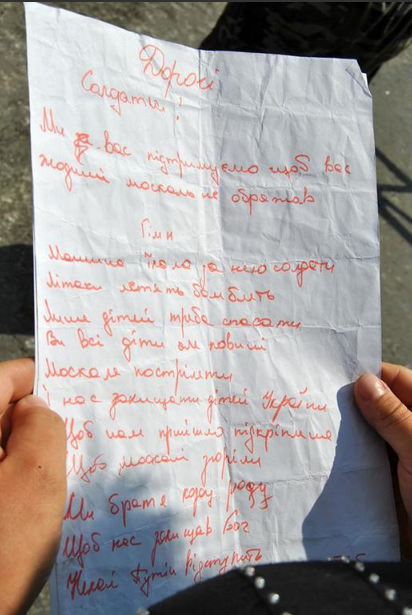 Дорогі
Солдати!
Ми вас підтримуємо щоб вас
жодний москаль не ображав
Гімн
Машина їхала за нею солдати
Літаки летять бомблять
Лише дітей треба спасати
Ви всі діти
Москаля постріляти
І нас захищати дітей України
Щоб нам прийшло підкріпление
Щоб москалі згоріли
Ми брате
Щоб нас захищав Бог
Нехай Путін відступить